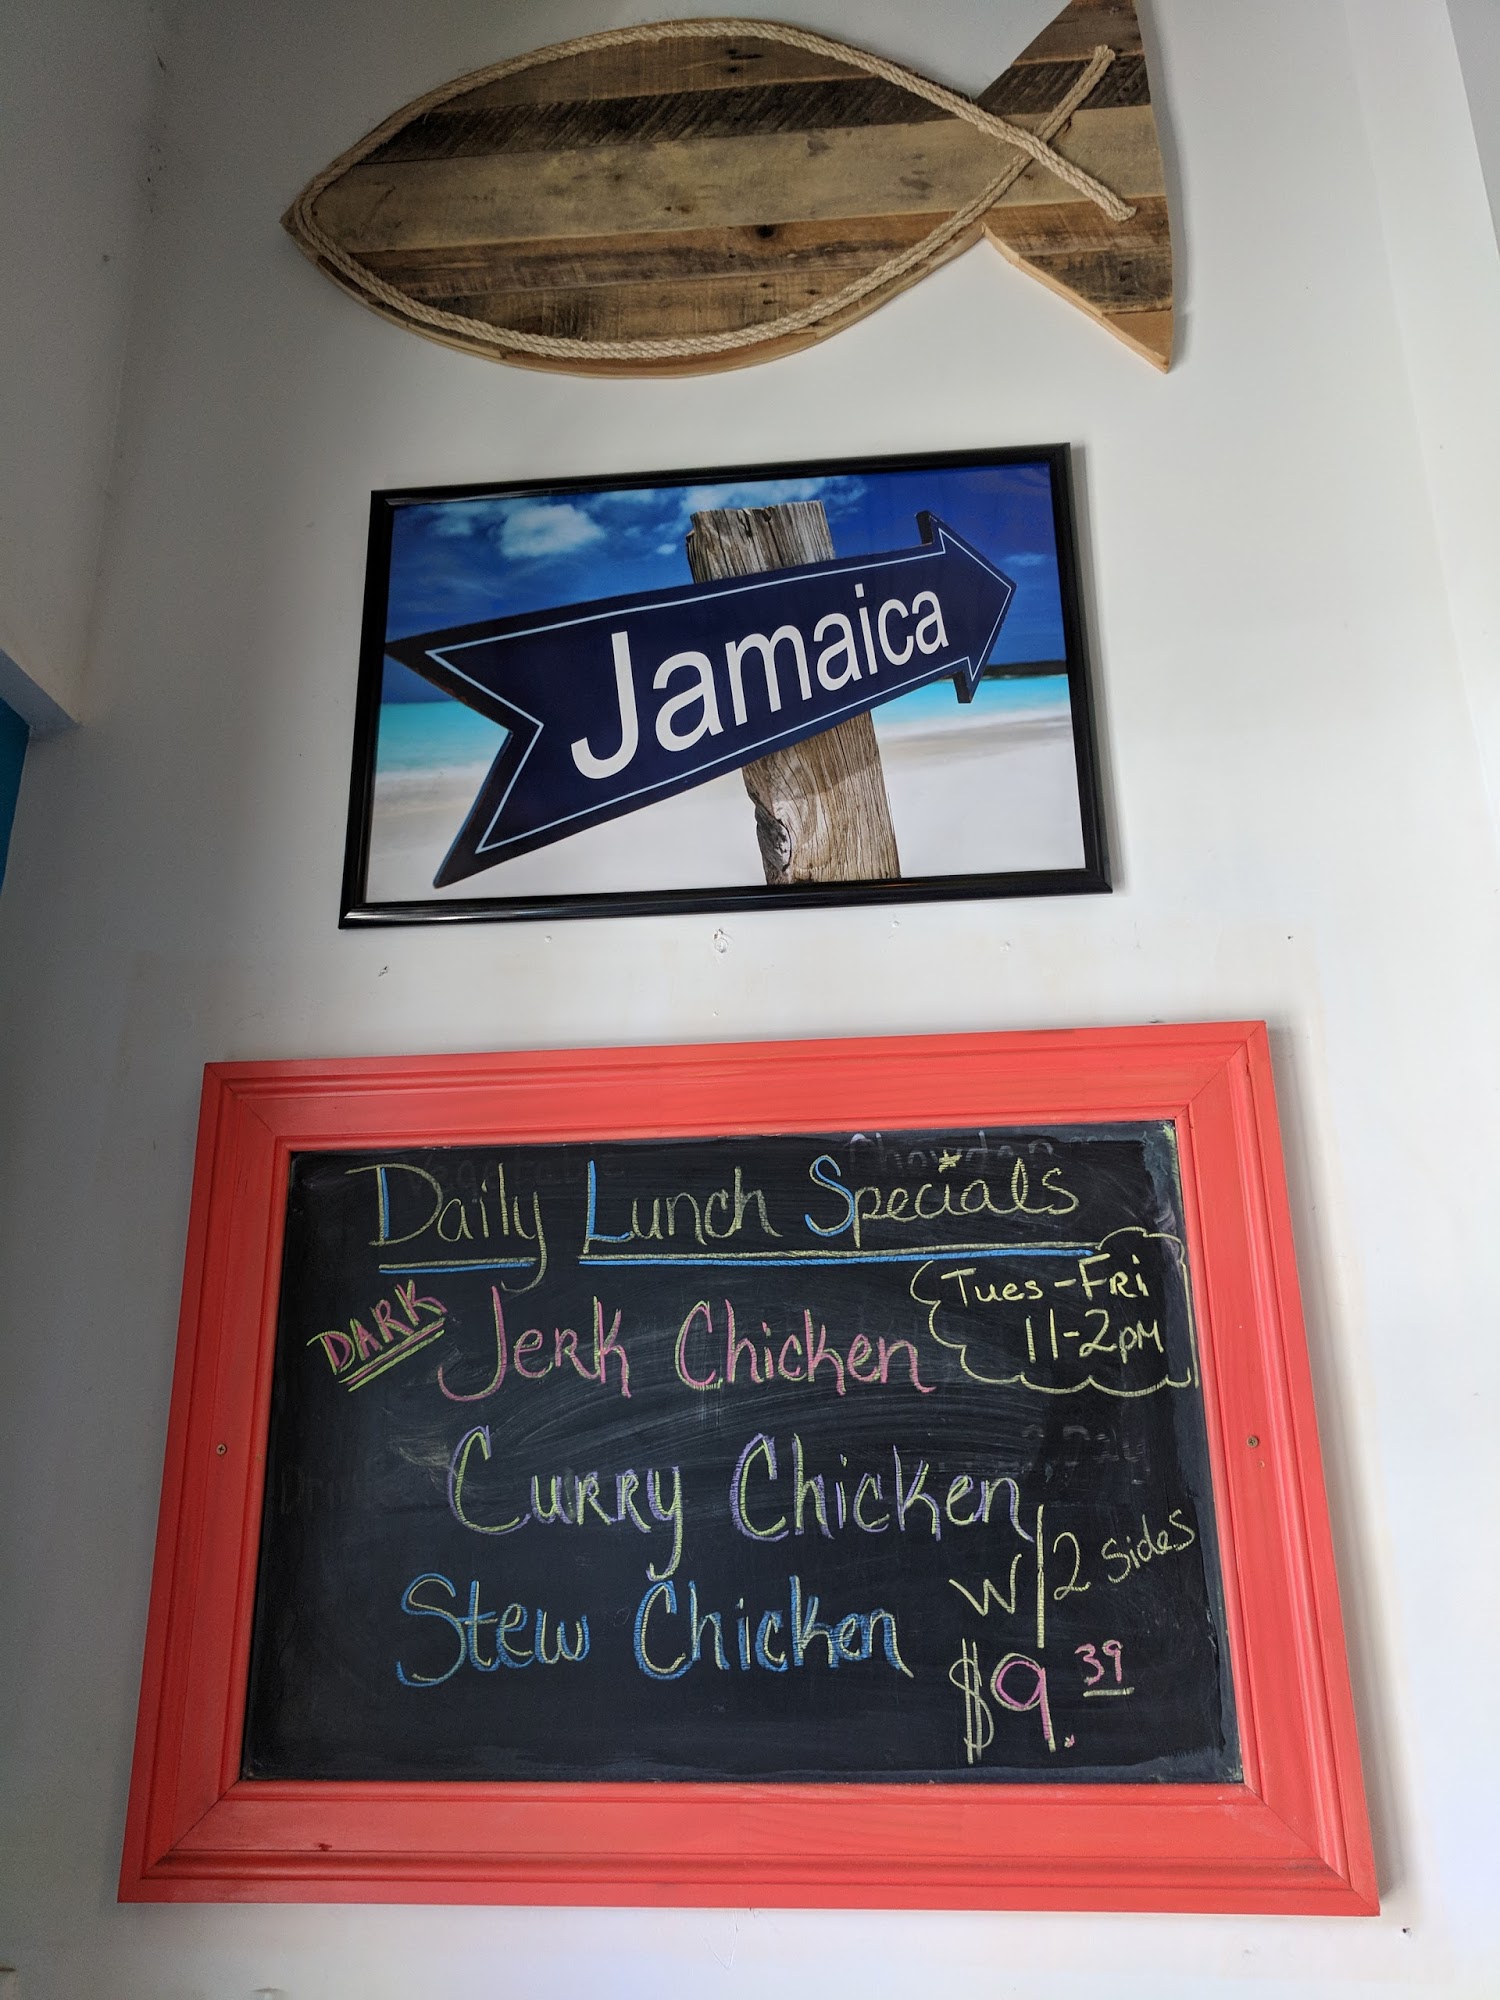 Jamaica
Daily Lunch Specials
Tues-Fri
11-2pm
DARK Jerk Chicken
Curry Chicken
w/2 sides
Stew Chicken
$9.39